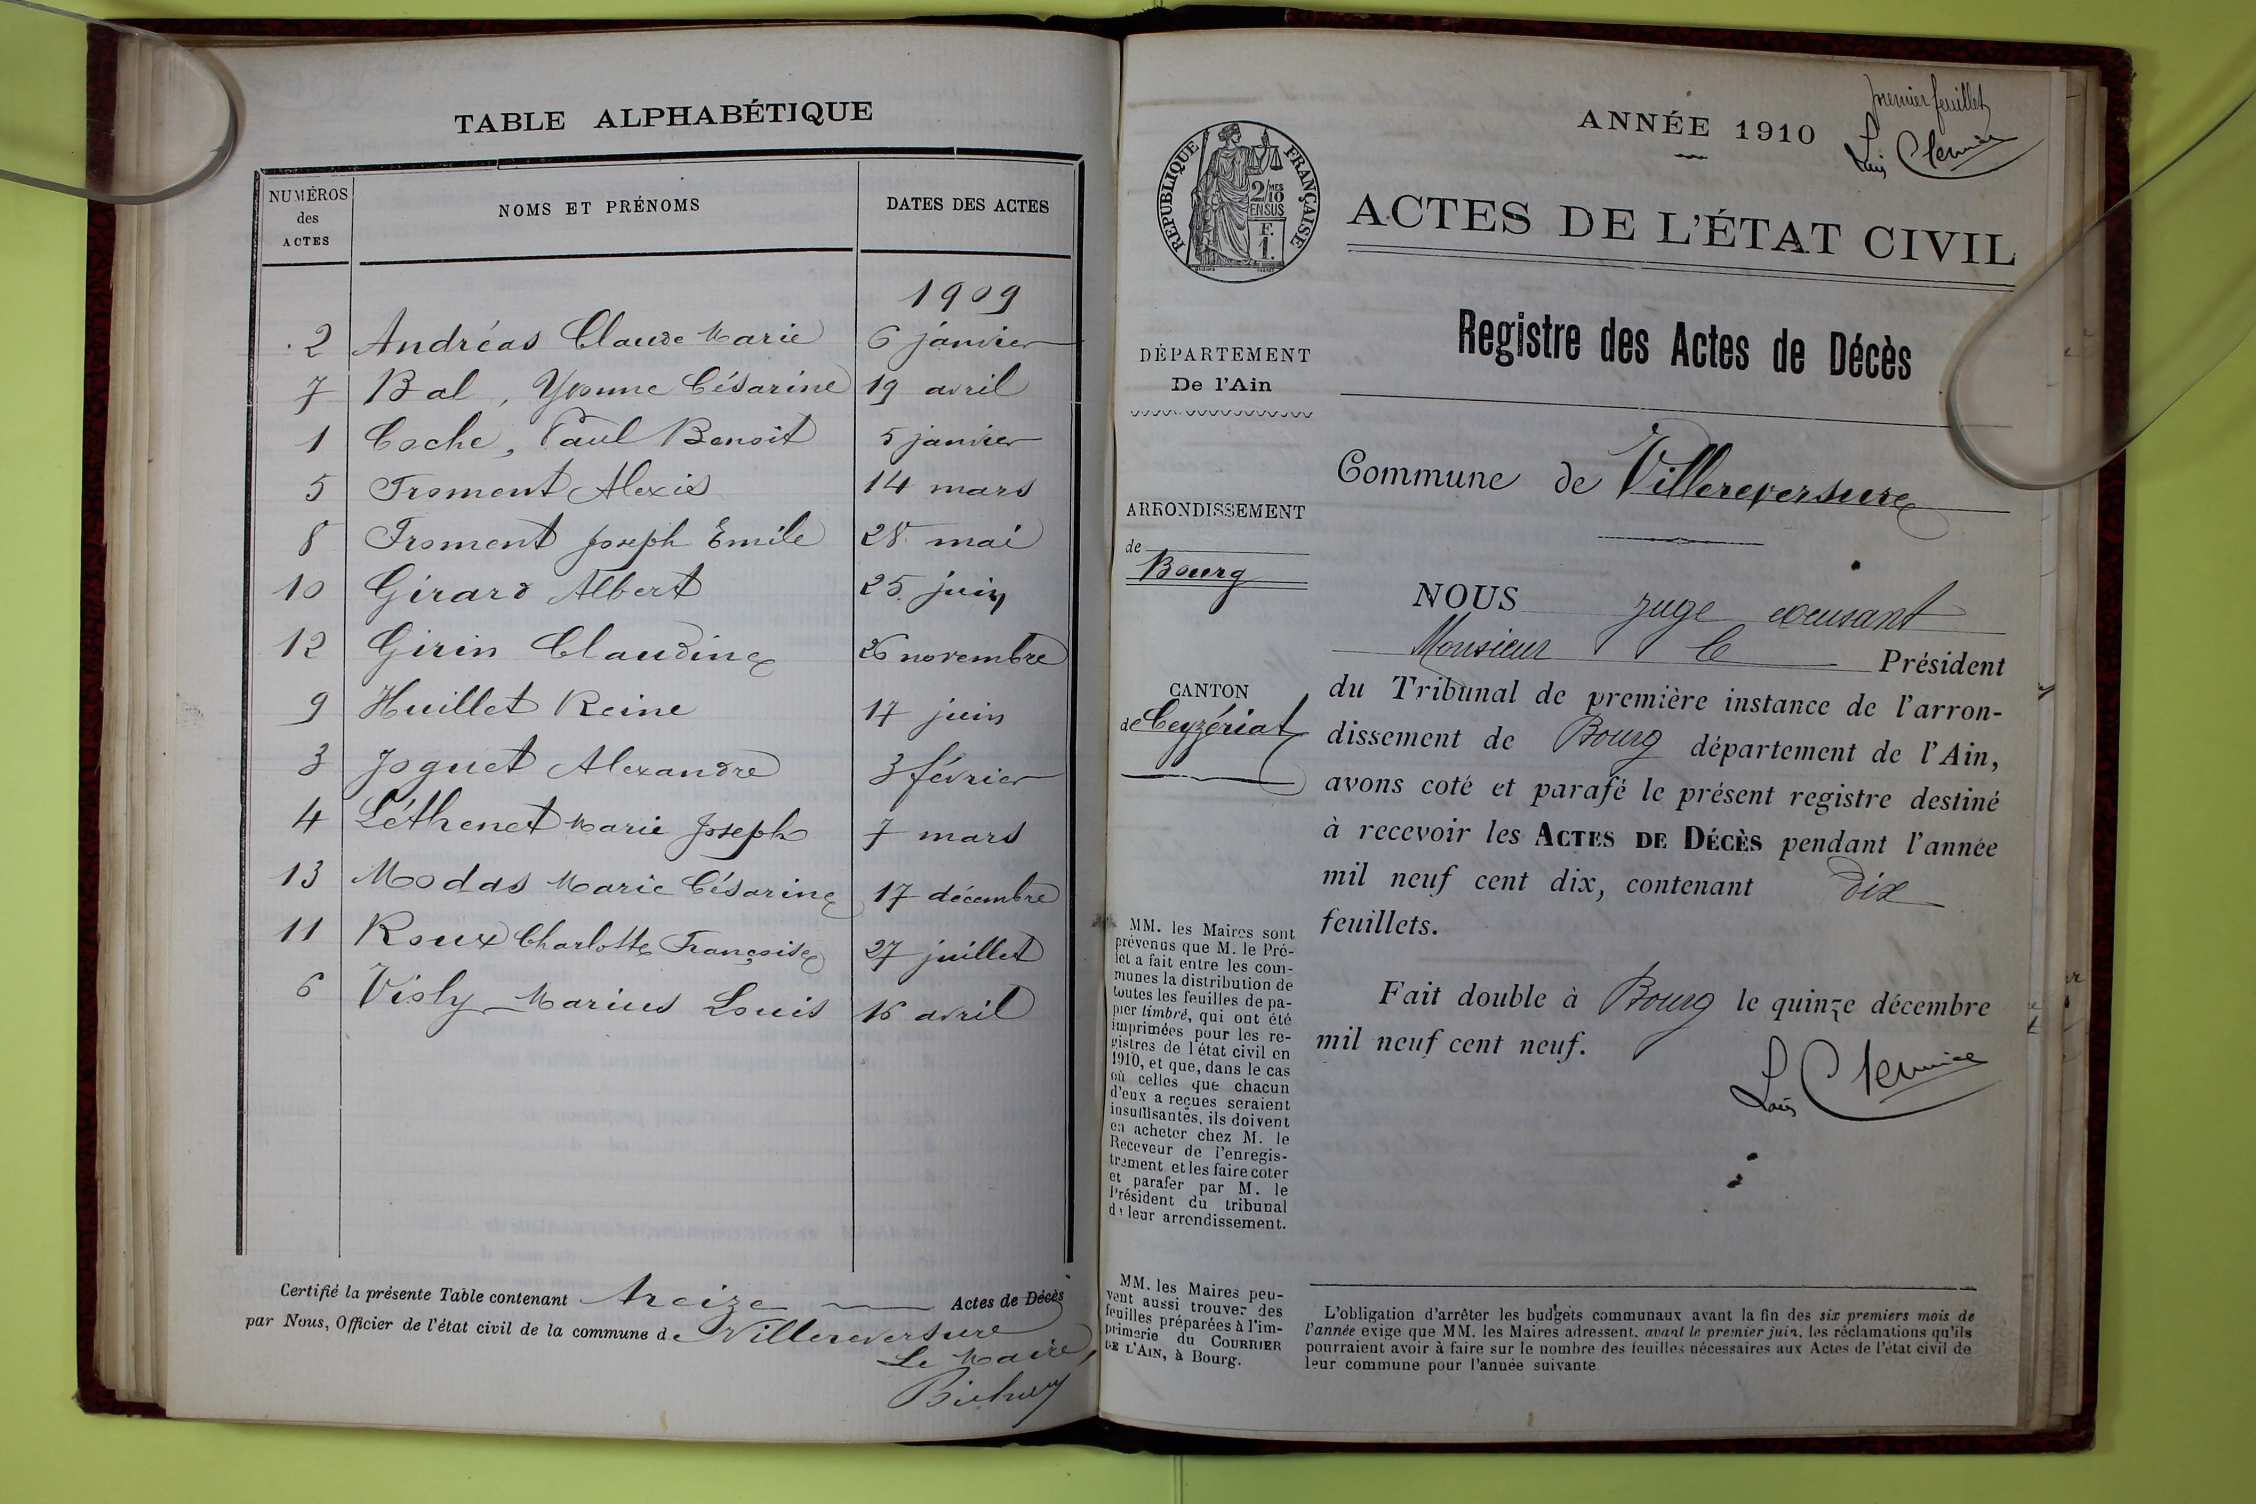 TABLE ALPHABÉTIQUE
NUMÉROS des ACTES
NOMS ET PRÉNOMS
DATES DES ACTES
1909
2 Andréas Claude Marie 6 janvier
7 Bal, Yvonne Césarine 19 avril
1 Coche, Paul Benoit 5 janvier
5 Froment Alexis 14 mars
8 Froment Joseph Emile 28 mai
10 Girard Albert 25 juin
12 Girin Claudine 26 novembre
9 Huillet Reine 17 juin
3 Joguet Alexandre 3 février
4 Léthenet Marie Joseph 7 mars
13 Modas Marie Césarine 17 décembre
11 Roux Charlotte Françoise 27 juillet
6 Visly Marius Louis 16 avril
Certifié la présente Table contenant treize Actes de Décès
par Nous, Officier de l'état civil de la commune de Villereversure
Le Maire,
premier feuillet
ANNÉE 1910
RÉPUBLIQUE FRANÇAISE
2/10 MES
EN SUS
F.
1.
ACTES DE L'ÉTAT CIVIL
Registre des Actes de Décès
DÉPARTEMENT
De l'Ain
Commune de Villereversure
ARRONDISSEMENT
de
Bourg
CANTON
de Ceyzériat
NOUS juge excusant
Monsieur le Président
du Tribunal de première instance de l'arron-
dissement de Bourg département de l'Ain,
avons coté et parafé le présent registre destiné
à recevoir les ACTES DE DÉCÈS pendant l'année
mil neuf cent dix, contenant dix
feuillets.
Fait double à Bourg le quinze décembre
mil neuf cent neuf.
MM. les Maires sont
prévenus que M. le Pré-
fet a fait entre les com-
munes la distribution de
toutes les feuilles de pa-
pier timbré, qui ont été
imprimées pour les re-
gistres de l'état civil en
1910, et que, dans le cas
où celles que chacun
d'eux a reçues seraient
insuffisantes, ils doivent
en acheter chez M. le
Receveur de l'enregis-
trement et les faire coter
et parafer par M. le
Président du tribunal
de leur arrondissement.
MM. les Maires peu-
vent aussi trouver des
feuilles préparées à l'im-
primerie du COURRIER
DE L'AIN, à Bourg.
L'obligation d'arrêter les budgets communaux avant la fin des six premiers mois de
l'année exige que MM. les Maires adressent, avant le premier juin, les réclamations qu'ils
pourraient avoir à faire sur le nombre des feuilles nécessaires aux Actes de l'état civil de
leur commune pour l'année suivante.